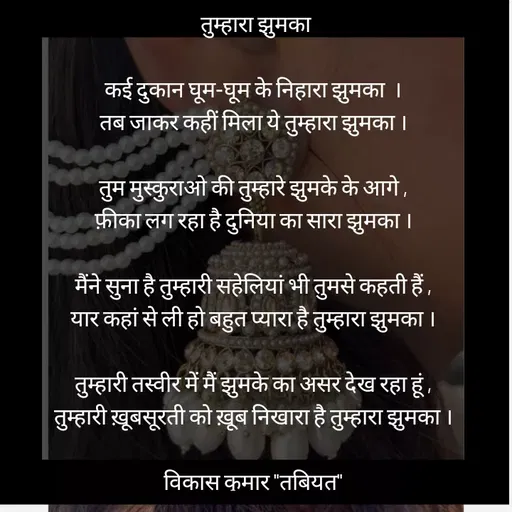 तुम्हारा झुमका
कई दुकान घूम-घूम के निहारा झुमका ।
तब जाकर कहीं मिला ये तुम्हारा झुमका ।
तुम मुस्कुराओ की तुम्हारे झुमके के आगे ,
फ़ीका लग रहा है दुनिया का सारा झुमका ।
मैंने सुना है तुम्हारी सहेलियां भी तुमसे कहती हैं ,
यार कहां से ली हो बहुत प्यारा है तुम्हारा झुमका ।
तुम्हारी तस्वीर में मैं झुमके का असर देख रहा हूं ,
तुम्हारी ख़ूबसूरती को ख़ूब निखारा है तुम्हारा झुमका ।
विकास कुमार "तबियत"